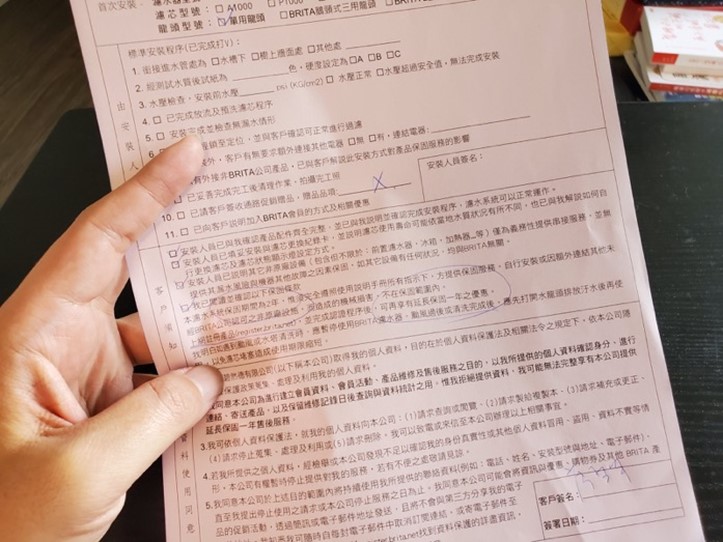 首次安裝:
濾芯型號: □ A1000 □ P1000
龍頭型號: 單用龍頭 □BRITA 三用龍頭
標準安裝程序(已完成打V):
1. 銜接進水管為 □水槽下 □櫃上邊面處 □其他處
2. 經測試水質後試紙為 色，硬度設定為□A □B □C
3. 水壓檢查，安裝前水壓 psi (KG/cm2) □ 水壓正常 □水壓超過安全值，無法完成安裝
4. □ 已完成放流及預洗濾芯程序
5. □ 安裝完成並檢查無漏水情形
6. 至定位，並與客戶確認可正常進行過濾
外，客戶有無要求額外連接其他電器 □無 □有，連結電器:
有外接非BRITA公司產品，已與客戶解說此安裝方式對產品保固服務的影響
□ 已妥善完成完工後清理作業，拍攝完工照
10. □ 已請客戶簽收通路促銷贈品，贈品品項: X
11. □ 已向客戶說明加入BRITA會員的方式及相關優惠
安裝人員簽名:
由安裝人
安裝人員已與我確認產品配件齊全完整，並已與我說明並確認完成安裝程序，濾水系統可以正常運作。
安裝人員已填妥安裝與濾芯更換紀錄卡，並說明濾芯使用壽命可能依當地水質狀況有所不同，也已與我解說如何自
行更換濾芯及濾芯狀態顯示燈設定方式。
安裝人員已說明其它非原廠設備（包含但不限於：前置濾水器，冰箱，加熱器…等）僅為義務性提供串接服務，並無
提供其漏水風險與機器其他故障之因素保固，如其它設備有任何狀況，均與BRITA無關。
我已閱讀並確認以下保固條款
本濾水系統保固期間為2年，惟須完全遵照使用說明手冊所有指示下，方提供保固服務。自行安裝或因額外連結其他未
經BRITA公司認可之非原廠設備，所造成的機械損害，不在保固範圍內。
上網註冊產品(register.brita.net)，並完成認證程序後，可再享有延長保固一年之優惠。
我明白如遇到颱風或水塔清洗時，應暫停使用BRITA濾水器，颱風過後或清洗完成後，應先打開水龍頭排放汙水後再使
以免濾芯堵塞造成使用期限縮短。
客戶須知
有限公司(以下稱本公司)取得我的個人資料，目的在於個人資料保護法及相關法令之規定下，依本公司隱
保護政策蒐集、處理及利用我的個人資料。
同意本公司為進行建立會員資料、會員活動、產品維修及售後服務之目的，以我所提供的個人資料確認身分、進行
連結、寄送產品，以及保留維修記錄日後查詢與資料統計之用。惟我拒絕提供資料，我可能無法完整享有本公司提供
延長保固一年售後服務。
3.我可依個人資料保護法，就我的個人資料向本公司：(1)請求查詢或閱覽、(2)請求製給複製本、(3)請求補充或更正、
(4)請求停止蒐集、處理及利用或(5)請求刪除，我可以致電或來信至本公司辦理以上相關事宜。
4.若我所提供之個人資料，經檢舉或本公司發現不足以確認我的身份真實性或其他個人資料冒用、盜用、資料不實等情
形，本公司有權暫時停止提供對我的服務，若有不便之處敬請見諒。
5.我同意本公司於上述目的範圍內將持續使用我所提供的聯絡資料(例如：電話、姓名、安裝型號與地址、電子郵件)，
直至我提出停止使用之請求或本公司停止服務之日為止。我同意本公司可能會將資訊與優惠、購物券及其他 BRITA 產
品的促銷活動，透過簡訊或電子郵件地址發送，且將不會與第三方分享我的電子
我可隨時自每封電子郵件中取消訂閱連結、或寄電子郵件至
brita.net找到資料保護的詳盡資訊。
資料使用同意
客戶簽名:
簽署日期: